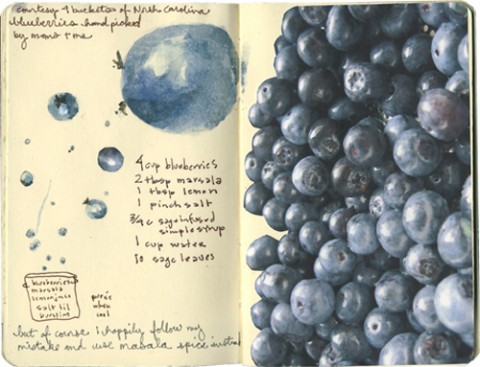 courtesy 4 buckets of North Carolina
blueberries hand picked
by mom + me
4 cup blueberries
2 tbsp marsala
1 tbsp lemon
1 pinch salt
3/4 c sage infused
simple syrup
1 cup water
10 sage leaves
blueberries
marsala
lemon juice
salt til
bursting
purée
when
cool
but of course I happily follow my
mistake and use masala spice instead